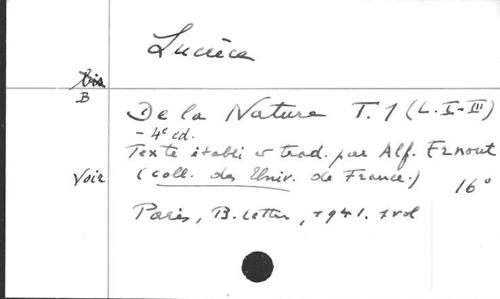 Lucrèce
bis
B
De la Nature T. 1 (L. I-III)
- 4e ed.
Texte établi & trad. par Alf. Ernout
Voir
(coll. des Univ. de France.)
16°
Paris, B. Letter, 1941. 1 vol